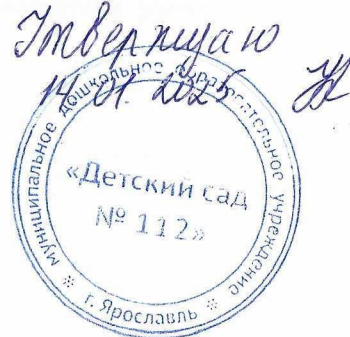 Утверждаю
14.01.2025
муниципальное дошкольное образовательное учреждение
«Детский сад
№ 112»
г. Ярославль